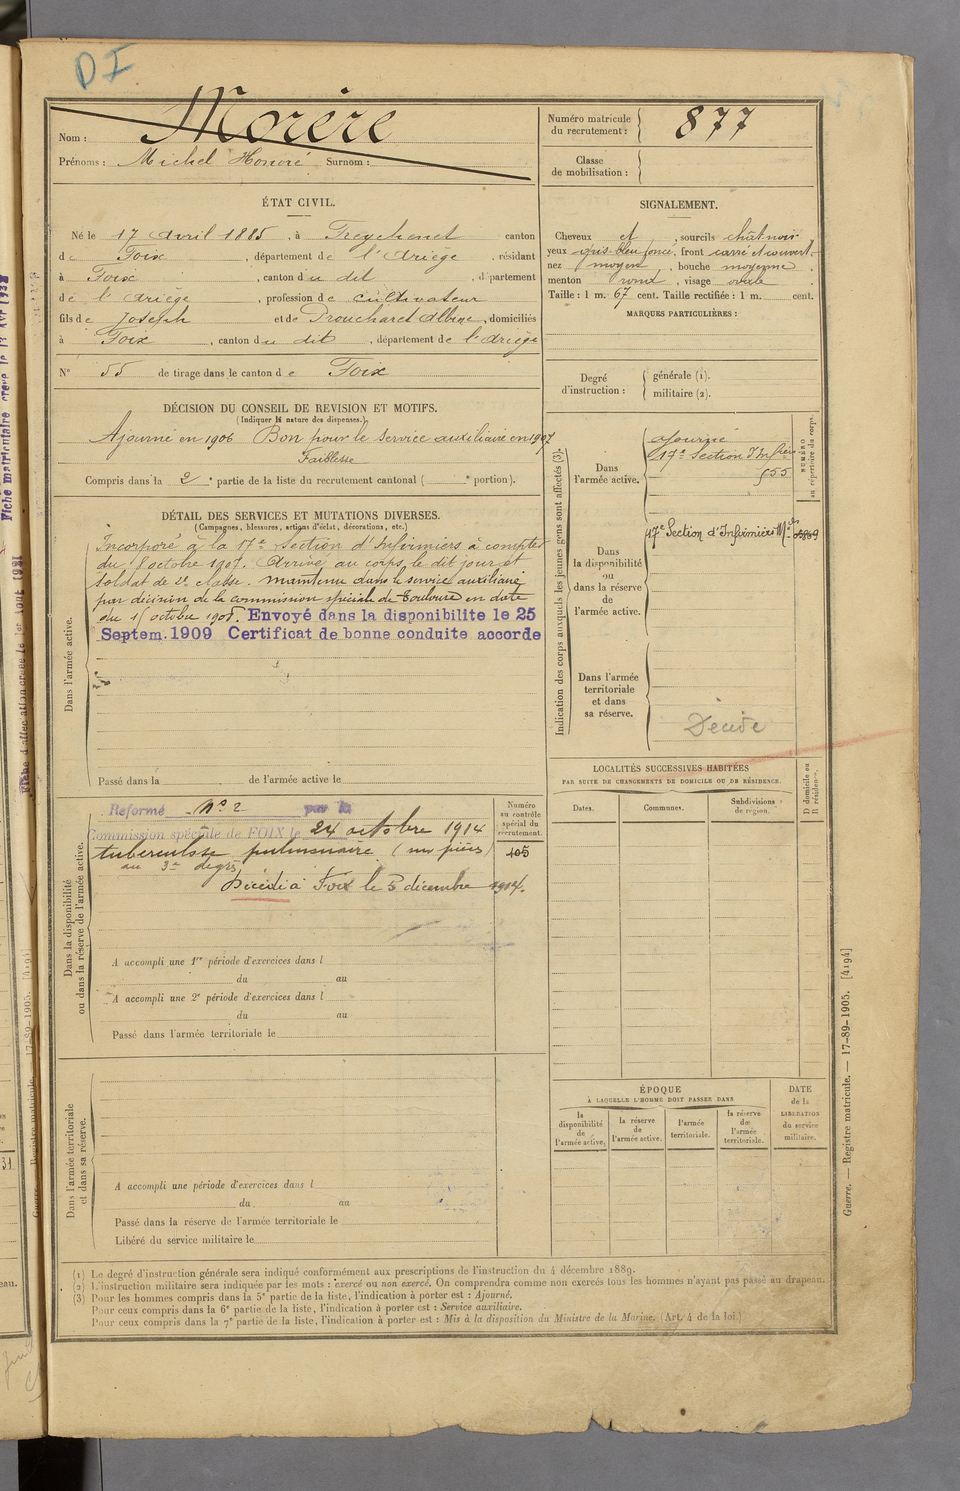 DI
Nom : Morère
Prénoms : Michel Honoré Surnom :
Numéro matricule du recrutement : 877
Classe de mobilisation :
ÉTAT CIVIL.
Né le 17 Avril 1885, à Freychenet canton
de Foix, département de l'Ariège, résidant
à Foix, canton du dit, département
de l'Ariège, profession de cultivateur
fils de Joseph et de Albine, domiciliés
à Foix, canton du dit, département de l'Ariège
N° 55 de tirage dans le canton de Foix
SIGNALEMENT.
Cheveux et, sourcils chât noir
yeux gris-bleu foncé, front carré et couvert,
nez moyen, bouche moyenne,
menton rond, visage ovale.
Taille : 1 m. 67 cent. Taille rectifiée : 1 m. cent.
MARQUES PARTICULIÈRES :
Degré d'instruction : générale (1).
militaire (2).
DÉCISION DU CONSEIL DE REVISION ET MOTIFS.
(Indiquer la nature des dispenses.)
Ajourné en 1906 Bon pour le service auxiliaire en 1907
Faiblesse
Compris dans la 2e partie de la liste du recrutement cantonal ( e portion).
DÉTAIL DES SERVICES ET MUTATIONS DIVERSES.
(Campagnes, blessures, actions d'éclat, décorations, etc.)
Dans l'armée active.
Incorporé à la 17e Section d'Infirmiers à compter
du 8 octobre 1907. Arrivé au corps le dit jour et
soldat de 2e classe. maintenu dans le service auxiliaire
par décision de la commission spéciale de Toulouse en date
du octobre 1908. Envoyé dans la disponibilite le 25
Septem. 1909 Certificat de bonne conduite accorde
Passé dans la de l'armée active le
Indication des corps auxquels les jeunes gens sont affectés (3).
NUMÉRO au répertoire du corps.
Dans l'armée active.
ajourné
17e Section d'Infirm
555
Dans la disponibilité ou dans la réserve de l'armée active.
17e Section d'Infirmiers Mres
Dans l'armée territoriale et dans sa réserve.
Décédé
LOCALITÉS SUCCESSIVES HABITÉES
PAR SUITE DE CHANGEMENTS DE DOMICILE OU DE RÉSIDENCE.
Dates.
Communes.
Subdivisions de région.
D domicile ou R résidence.
Dans la disponibilité ou dans la réserve de l'armée active.
Numéro au contrôle spécial du recrutement.
105
Reformé N° 2 par la
Commission spéciale de FOIX le 24 octobre 1914
tuberculose pulmonaire
au 3e degré
Décédé à Foix le 3 décembre 1914.
A accompli une 1re période d'exercices dans l
du au
A accompli une 2e période d'exercices dans l
du au
Passé dans l'armée territoriale le
Dans l'armée territoriale et dans sa réserve.
A accompli une période d'exercices dans l
du au
Passé dans la réserve de l'armée territoriale le
Libéré du service militaire le
ÉPOQUE
À LAQUELLE L'HOMME DOIT PASSER DANS
la disponibilité de l'armée active.
la réserve de l'armée active.
l'armée territoriale.
la réserve de l'armée territoriale.
DATE de la LIBÉRATION du service militaire.
(1) Le degré d'instruction générale sera indiqué conformément aux prescriptions de l'instruction du 4 décembre 1889.
(2) L'instruction militaire sera indiquée par les mots : exercé ou non exercé. On comprendra comme non exercés tous les hommes n'ayant pas passé au drapeau.
(3) Pour les hommes compris dans la 5e partie de la liste, l'indication à porter est : Ajourné.
Pour ceux compris dans la 6e partie de la liste, l'indication à porter est : Service auxiliaire.
Pour ceux compris dans la 7e partie de la liste, l'indication à porter est : Mis à la disposition du Ministre de la Marine. (Art. 4 de la loi.)
Guerre. — Registre matricule. — 17-89-1905. [4194]